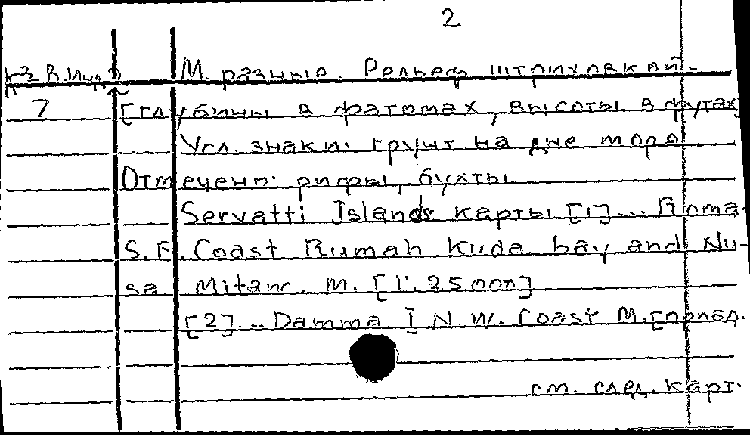 2
М. разные. Рельеф штриховкой.
7 [глубины в фатомах, высоты в футах
Усл. знаки: грунт на дне моря
Отмечены: рифы, бухты
Servatti Islands карты [1]... Roma.
S.E. Coast Rumah Kuda bay and Nu-
sa Mitan. M. [1:25000]
[2]... Damma I N.W. Coast M.
см. след. карт.